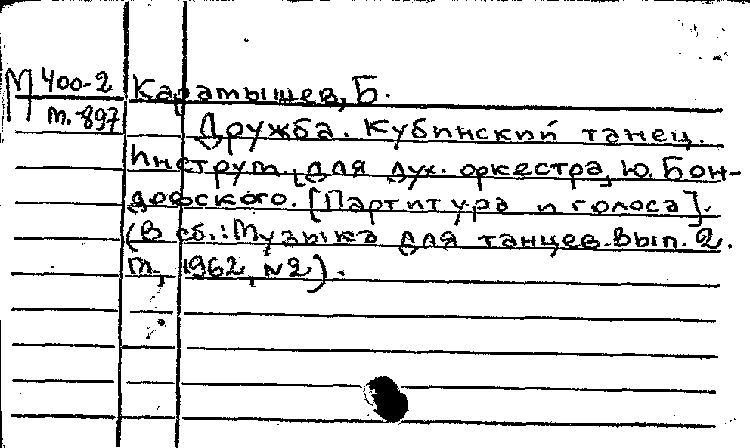 М 400-2
т.-897
Каратышев, Б.
Дружба. Кубинский танец.
Инструм. для дух. оркестра, Ю. Бон-
дофского. [Партитура и голоса].
(В сб.: Музыка для танцев. Вып. 2.
М., 1962, №2).